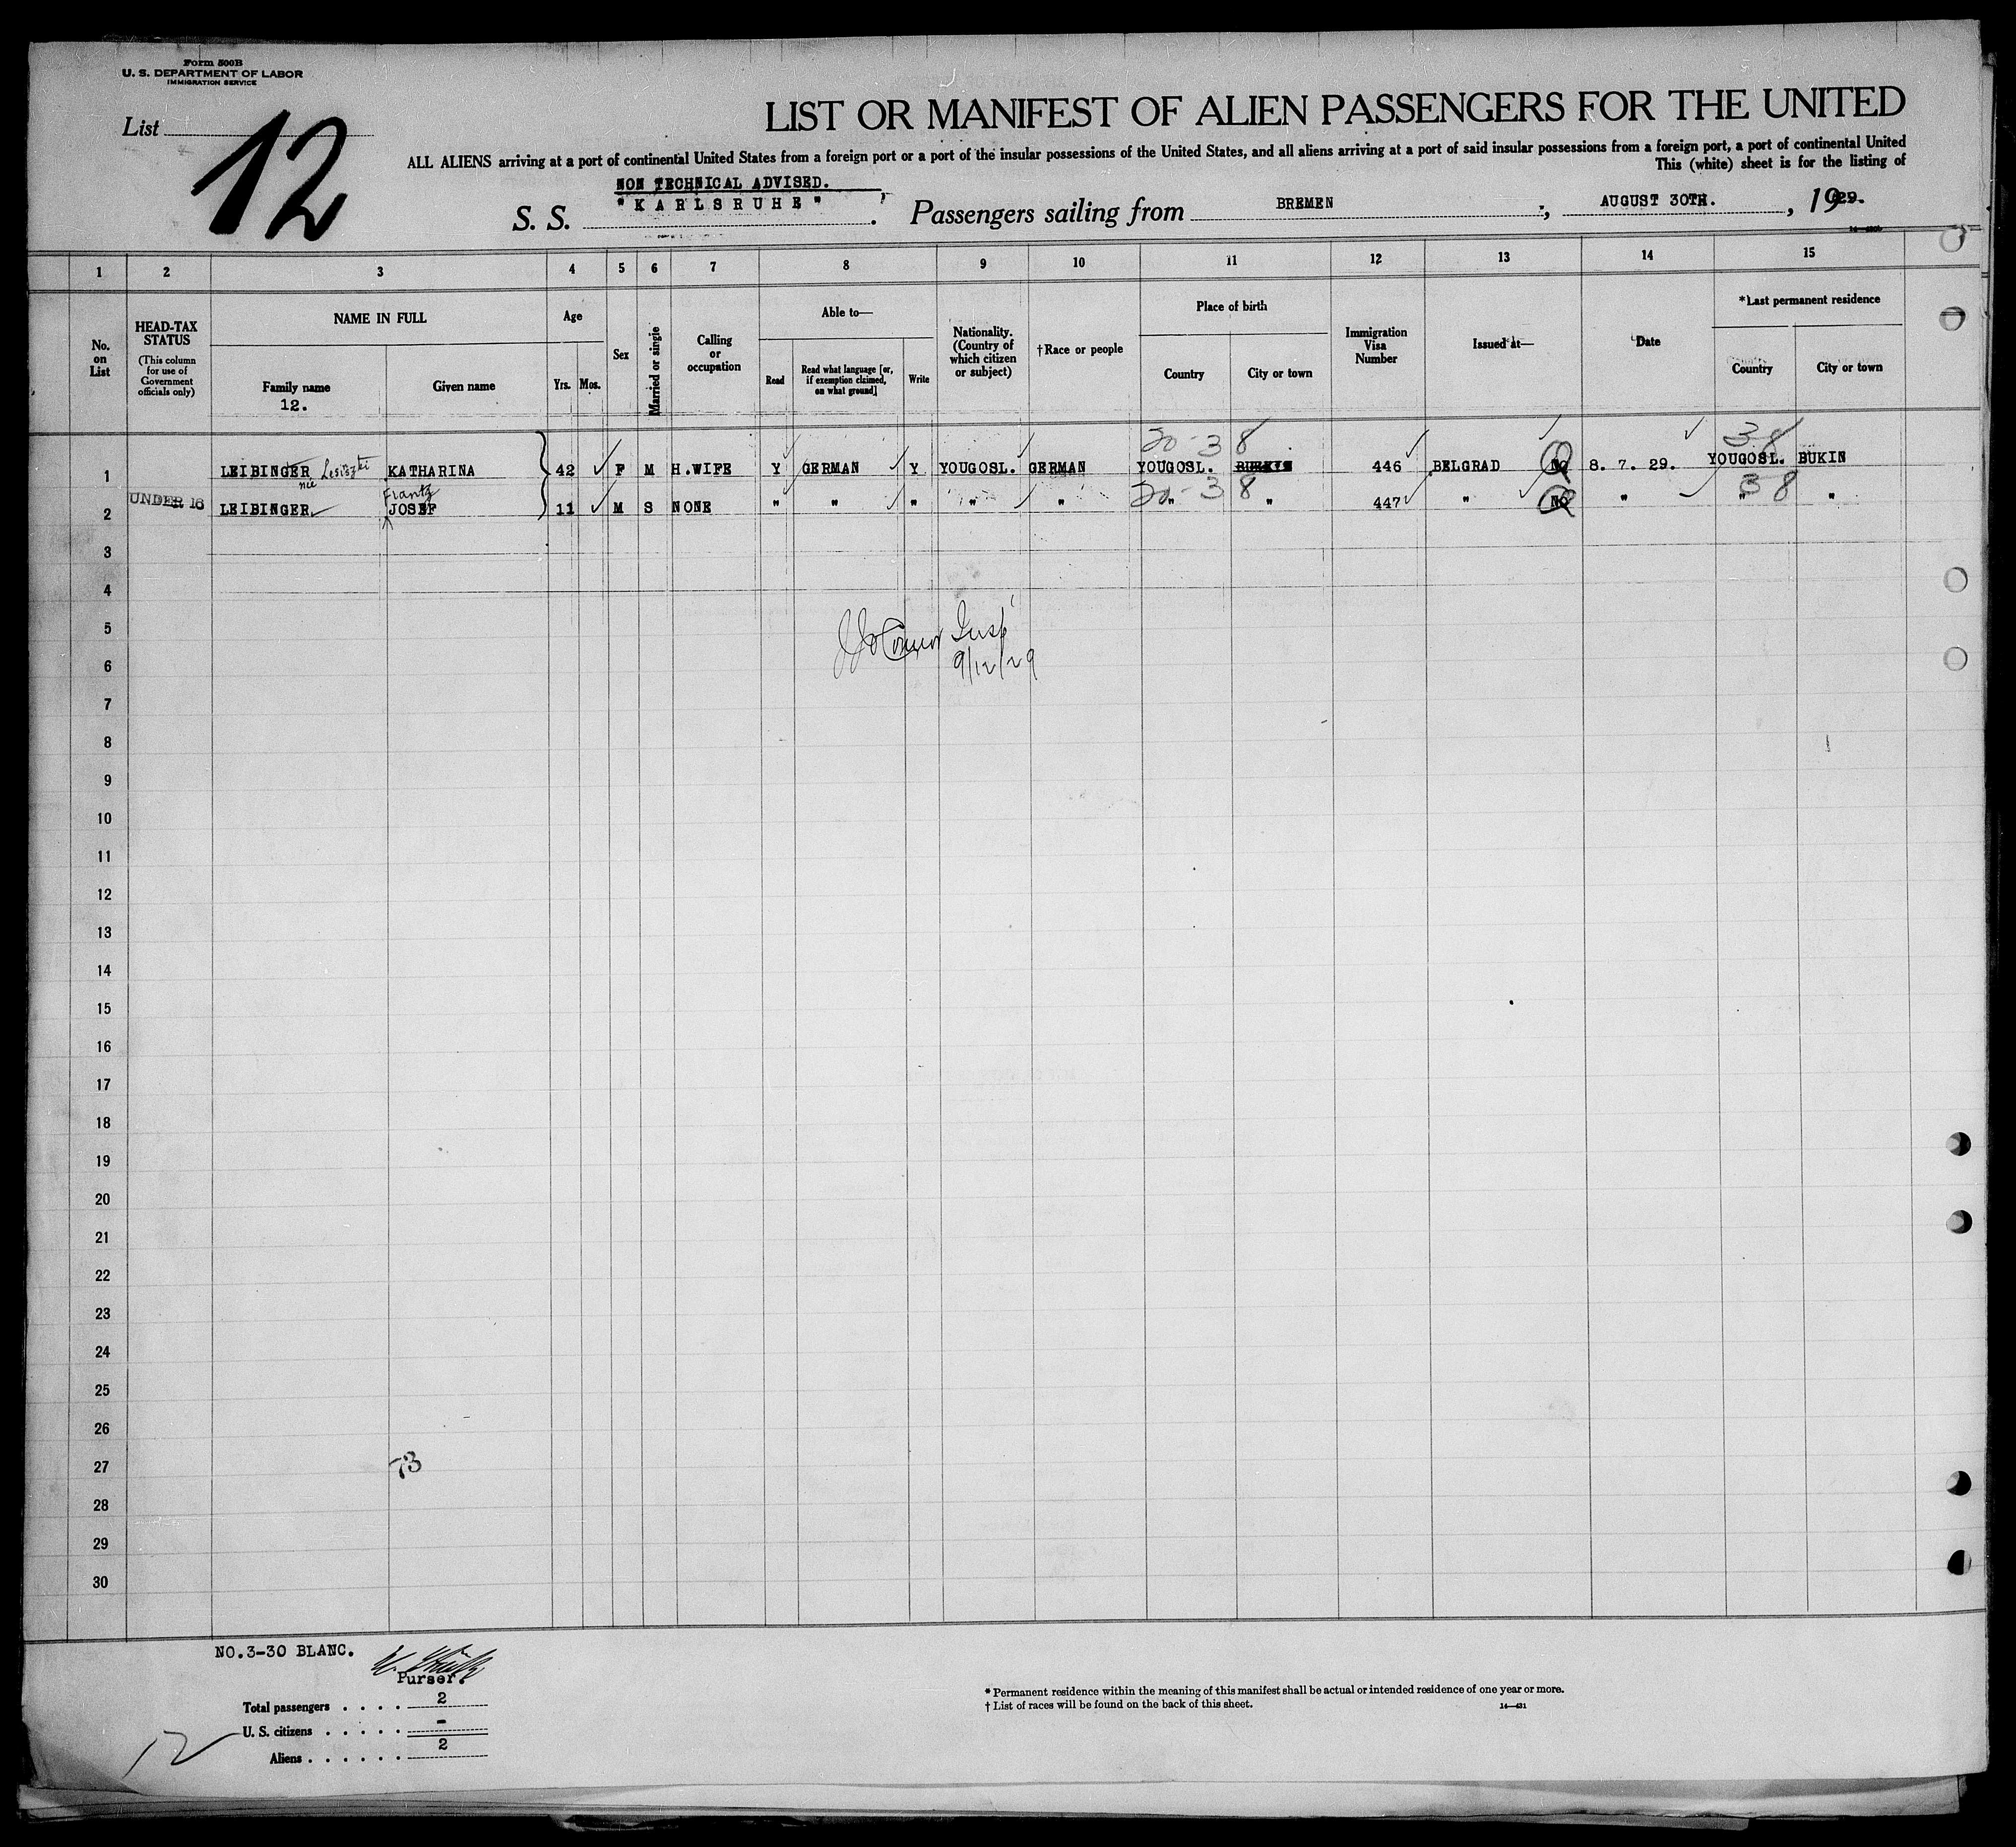 Form 500B
U. S. DEPARTMENT OF LABOR
IMMIGRATION SERVICE
List 12
LIST OR MANIFEST OF ALIEN PASSENGERS FOR THE UNITED
ALL ALIENS arriving at a port of continental United States from a foreign port or a port of the insular possessions of the United States, and all aliens arriving at a port of said insular possessions from a foreign port, a port of continental United
This (white) sheet is for the listing of
NON TECHNICAL ADVISED.
S. S. "KARLSRUHE" . Passengers sailing from BREMEN , AUGUST 30TH. , 1929.
1 2 3 4 5 6 7 8 9 10 11 12 13 14 15
No. on List
HEAD-TAX STATUS
(This column for use of Government officials only)
NAME IN FULL
Family name
12.
Given name
Age
Yrs. Mos.
Sex
Married or single
Calling or occupation
Able to—
Read
Read what language [or, if exemption claimed, on what ground]
Write
Nationality. (Country of which citizen or subject)
†Race or people
Place of birth
Country
City or town
Immigration Visa Number
Issued at—
Date
*Last permanent residence
Country
City or town
20-38 38
1 LEIBINGER née KATHARINA 42 F M H.WIFE Y GERMAN Y YOUGOSL. GERMAN YOUGOSL. 446 BELGRAD NQ 8. 7. 29. YOUGOSL. BUKIN
Frantz
20-38 38
2 UNDER 16 LEIBINGER JOSEF 11 M S NONE " " " " " " " 447 " NQ " " "
3
4
5
Insp
6
9/12/29
7
8
9
10
11
12
13
14
15
16
17
18
19
20
21
22
23
24
25
26
27
73
28
29
30
NO.3-30 BLANC.
Purser.
Total passengers . . . . 2
U. S. citizens . . . . . -
Aliens . . . . . . 2
12
* Permanent residence within the meaning of this manifest shall be actual or intended residence of one year or more.
† List of races will be found on the back of this sheet.
14—431